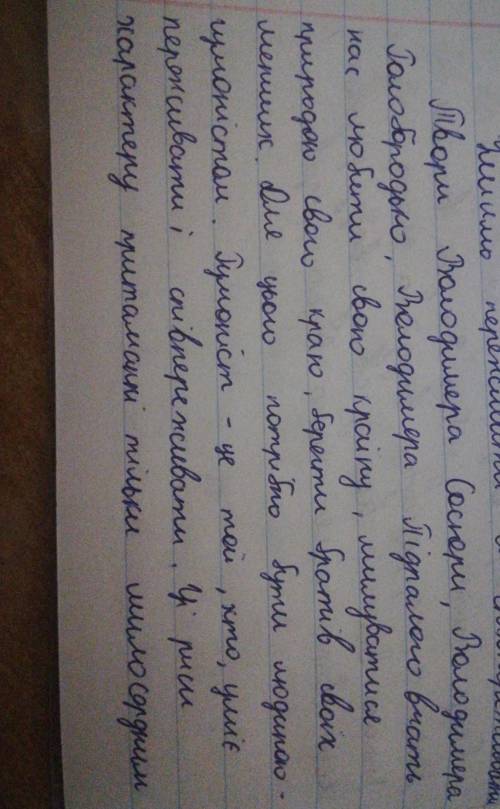 Твори Володимера Сосюри, Володимера
Голобородько, Володимера Підпалого вчать
нас любити свою країну, милуватися
природою свого краю, берегти братів своїх
менших. Для цього потрібно бути людиною-
гуманістом. Гуманіст - це той, хто, уміє
переживати і співпереживати. Ці риси
характеру притаманні тільки милосердним